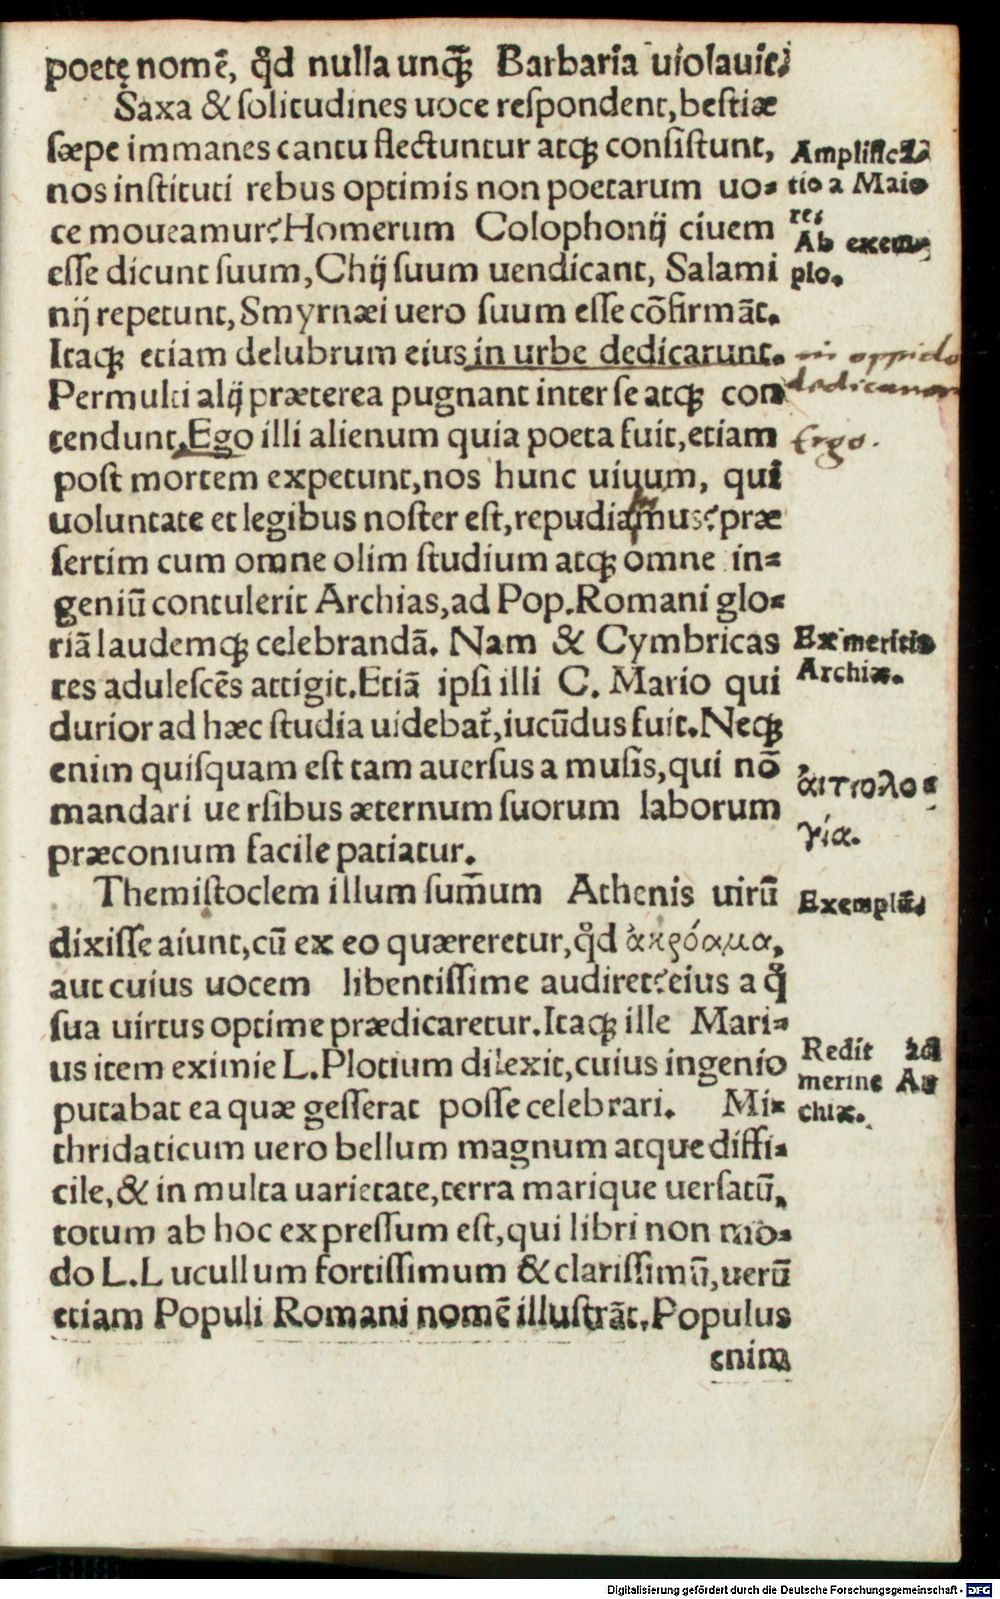 poetę nomē, qd̉ nulla unꝗ̃ Barbaria uiolauit.
Saxa & solitudines uoce respondent, bestiæ
sæpe immanes cantu flectuntur atq; consistunt,
nos instituti rebus optimis non poetarum uo-
ce moueamur? Homerum Colophonij ciuem
esse dicunt suum, Chij suum uendicant, Salami
nij repetunt, Smyrnæi uero suum esse cōfirmāt.
Itaq; etiam delubrum eius in urbe dedicarunt.
Permulti alij præterea pugnant inter se atq; con
tendunt. Ego illi alienum quia poeta fuit, etiam
post mortem expetunt, nos hunc uiuum, qui
uoluntate et legibus noster est, repudiamus? præ
sertim cum omne olim studium atq; omne in-
geniū contulerit Archias, ad Pop. Romani glo-
riā laudemq; celebrandā. Nam & Cymbricas
res adulescēs attigit. Etiā ipsi illi C. Mario qui
durior ad hæc studia uidebat̃, iucūdus fuit. Neq;
enim quisquam est tam auersus a musis, qui nō
mandari uersibus æternum suorum laborum
præconium facile patiatur.
Themistoclem illum sum̃um Athenis uirū
dixisse aiunt, cū ex eo quæreretur, qd̉ ἀκρόαμα,
aut cuius uocem libentissime audiret? eius a q̊
sua uirtus optime prædicaretur. Itaq; ille Mari-
us item eximie L. Plotium dilexit, cuius ingenio
putabat ea quæ gesserat posse celebrari. Mi-
thridaticum uero bellum magnum atque diffi-
cile, & in multa uarietate, terra marique uersatū,
totum ab hoc expressum est, qui libri non mo-
do L. Lucullum fortissimum & clarissimū, uerū
etiam Populi Romani nomē illustrāt. Populus
enim
Amplifica
tio a Maio
re.
Ab exem-
plo.
in oppido
dedicarunt
Ergo.
Ex meritis
Archiæ.
αἰτιολο-
γία.
Exemplū.
Redit ad
merine Ar
chiæ.
Digitalisierung gefördert durch die Deutsche Forschungsgemeinschaft - DFG